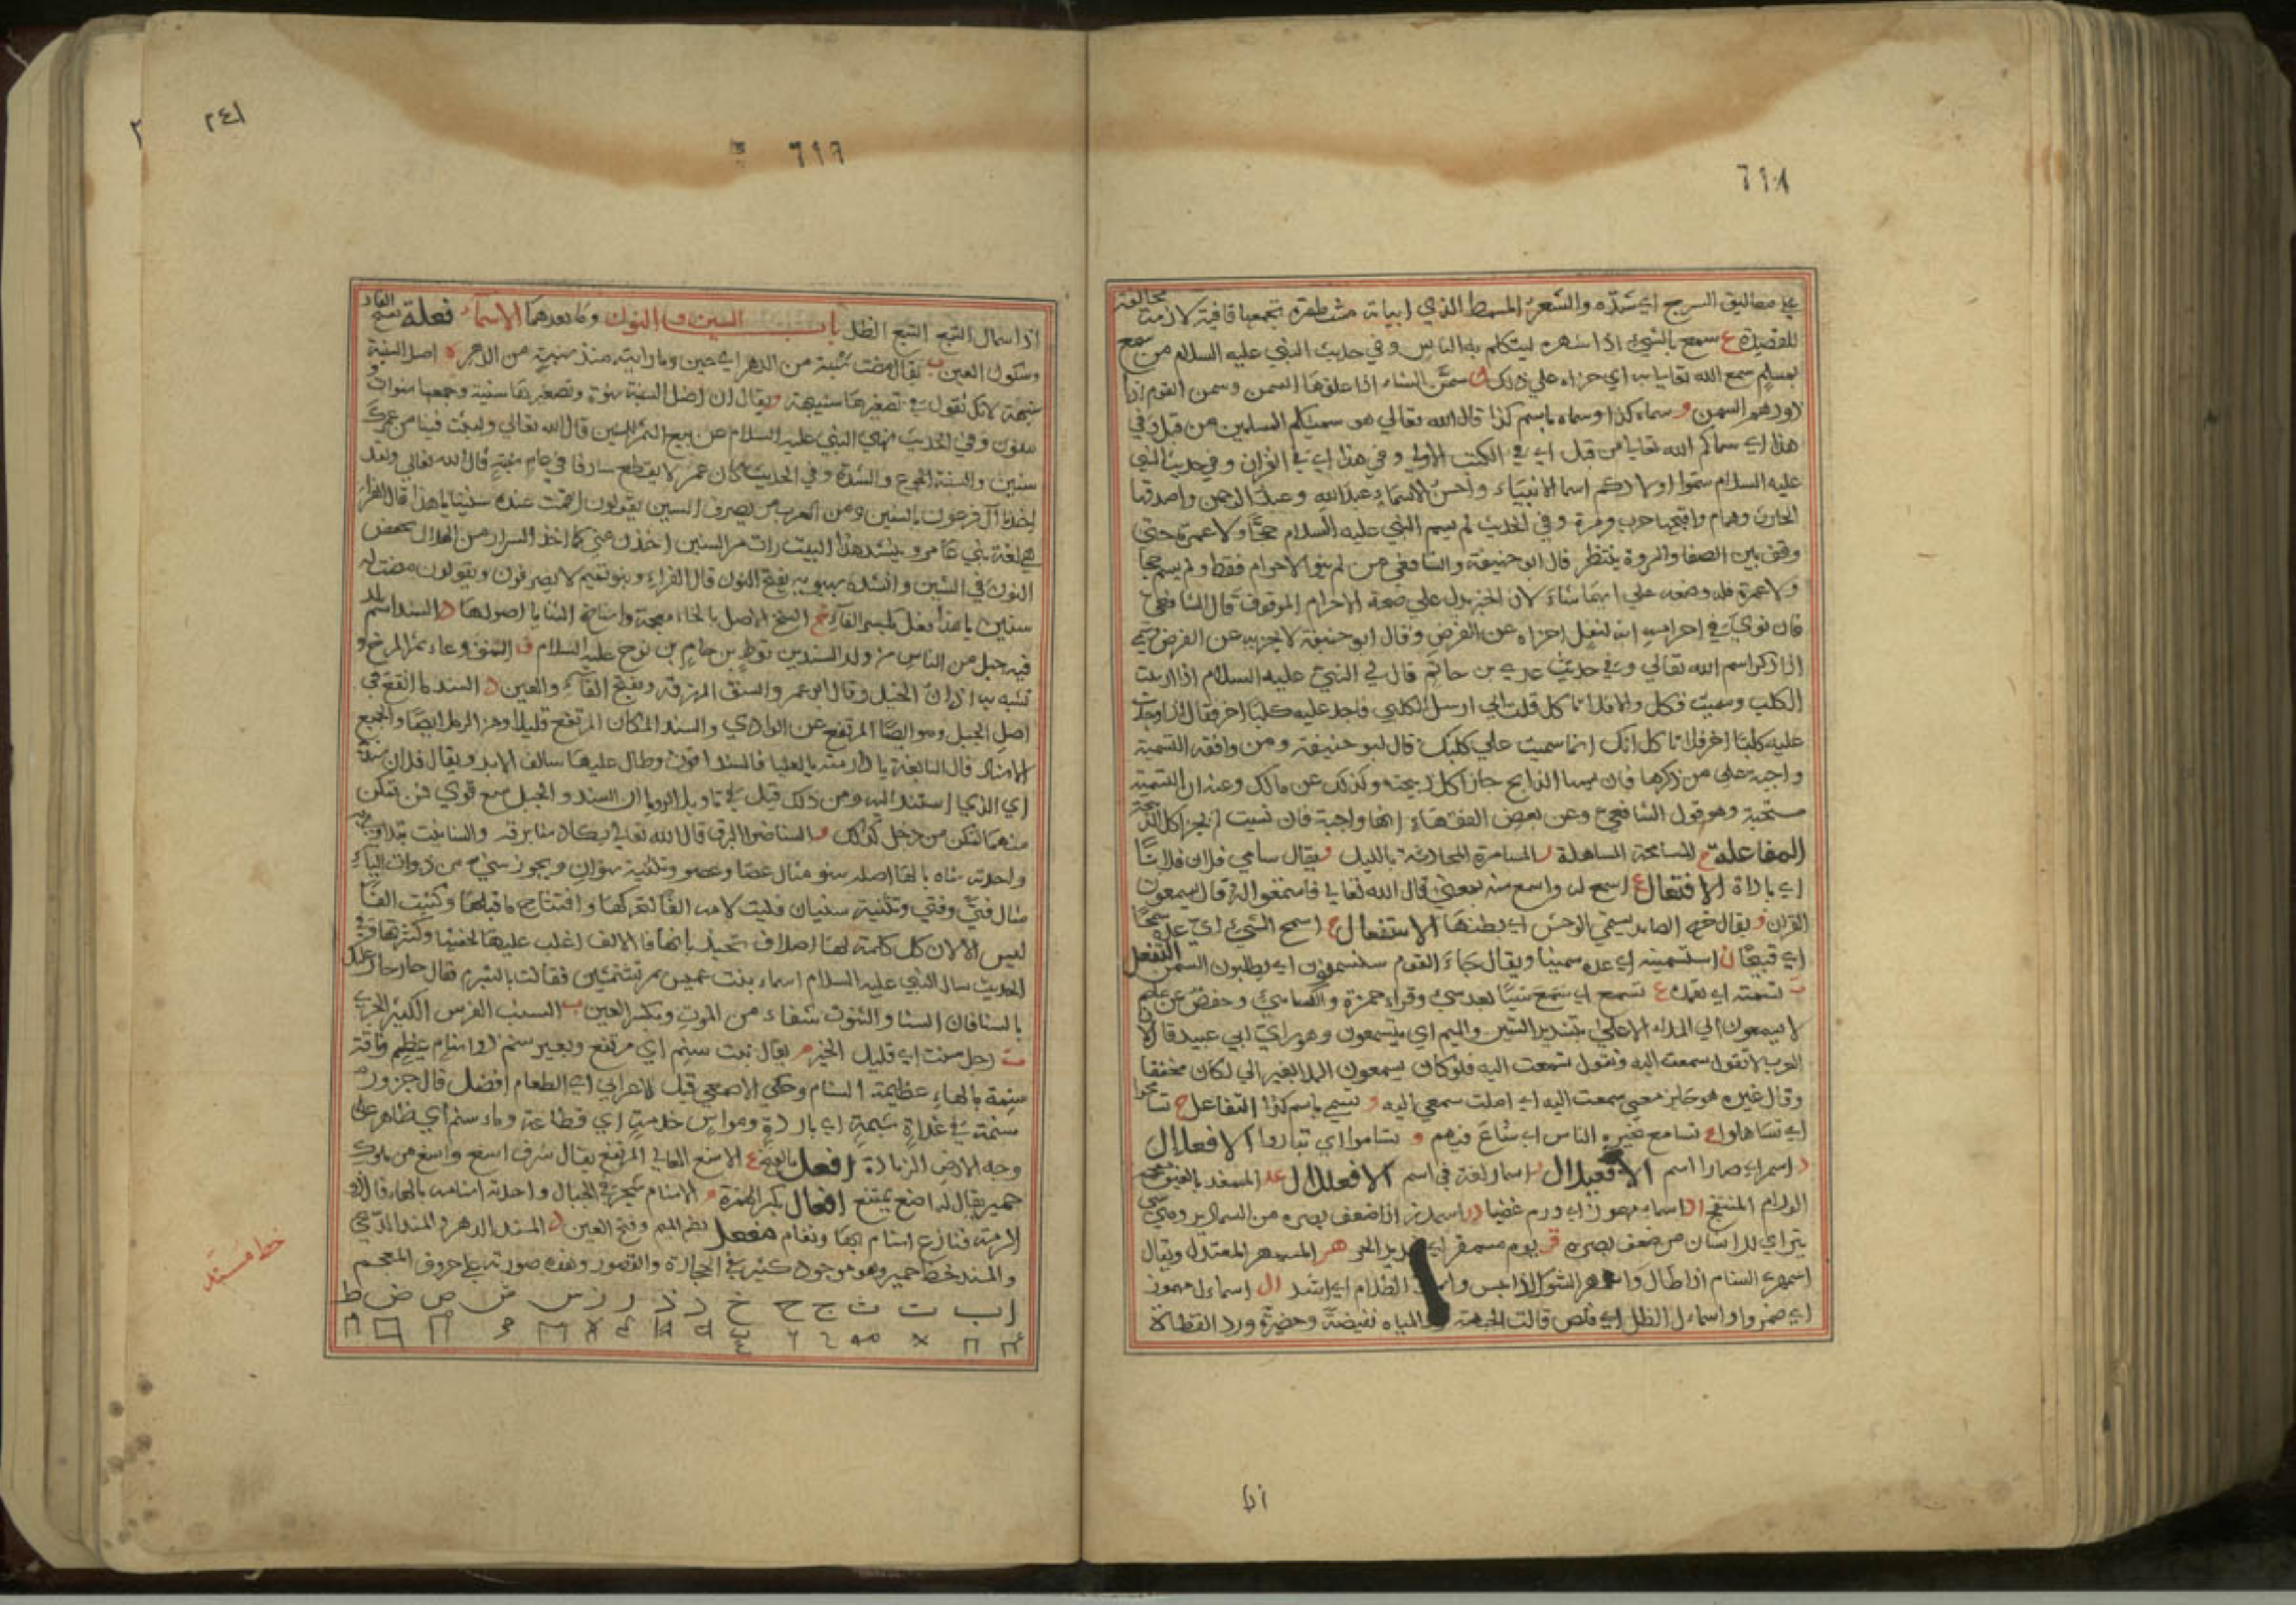 ٦١٨
على معاليق السرج اي شده والشعر المسمط الذي ابياته مشطورة تجمعها قافية لازمة مخالفة
للقصيدة ع سمع بالشيء اذا شهره ليتكلم به الناس وفي حديث النبي عليه السلام من سمع
بمسلم سمع الله تعالى به اي جزاه على ذلك ن سمن الشاء اذا علفها السمن وسمن القوم اذا
زودهم السمن و سماه كذا وسماه باسم كذا قال الله تعالي هو سميكم المسلمين من قبل وفي
هذا اي سماكم الله تعالى من قبل اي في الكتب الاولى وفي هذا اي في القران وفي حديث النبي
عليه السلام سموا اولادكم اسما الانبياء واحسن الاسماء عبد الله وعبد الرحمن واصدقها
الحارث وهمام واقبحها حرب ومرة وفي الحديث لم يسم النبي عليه السلام حجا ولا عمرة حتى
وقف بين الصفا والمروة ينتظر قال ابو حنيفة والشافعي من لم ينو الا حرام فقط ولم يسم حجا
ولا عمرة فله وضعه على ايهما شاء لان الخبر يدل على صحة الاحرام الموقوف قال الشافعي
فان نوى في احرامه انه لنفل اجزاه عن الفرض وقال ابو حنيفة لا يجزيه عن الفرض
اذا ذكر اسم الله تعالي وفي حديث عدي بن حاتم قال لي النبي عليه السلام اذا ارسلت
الكلب وسميت فكل والا فلا تاكل قلت اني ارسل كلبي فاجد عليه كلبا اخر فقال اذا وجدت
عليه كلبا اخر فلا تاكل انك انما سميت على كلبك قال ابو حنيفة ومن وافقه التسمية
واجبة على من ذكرها فان نسها الذابح جاز اكل ذبيحته وكذلك عن مالك وعنه ان التسمية
مستحبة وهو قول الشافعي وعن بعض الفقهاء انها واجبة فان نسيت لم يجز اكل الذبيحة
المفاعلة ح المسامحة المساهلة ر المسامرة المحادثة بالليل و يقال سامي فلان فلانا
اي باراه الافتعال ع اسمع له واسمع منه بمعنى قال الله تعالى فاستمعوا له قال يسمعون
القران و يقال خرج الصايد يستمي الوحش اي يطلبها الاستفعال ج اسمج الشيء اي عده سمجا
اي قبيحا ن استسمنه اي عده سمينا ويقال جاء القوم يستسمنون اي يطلبون السمن التفعل
ت تسمته اي تعمده ع تسمع اي سمع شيئا بعد شيء وقراء حمزة والكسائي وحفص عن عاصم
لا يسمعون الى الملاء الاعلى بتشديد السين والميم اي يتسمعون وهو راي ابي عبيد قال لان
العرب لا تقول سمعت اليه وتقول تسمعت اليه فلو كان يسمعون الملا بغير الى لكان مخففا
وقال غيره هو جايز معنى سمعت اليه اي املت سمعي اليه و تسمى باسم كذا التفاعل ح تسامحوا
اي تساهلوا ع تسامع بخبره الناس اي شاع فيهم و تساموا اي تباروا الافعلال
ر اسمر اي صارا اسم الافعيلال ر اسمار لغة في اسم الافعلال غد المسمغد بالغين معجمة
الوارم المنتفخ اد اسماد مهموز اي ورم غضبا در اسمدر اذا ضعف بصره من السمادير وهي شيء
يتراى للانسان من ضعف بصره قر يوم مسمقر اي شديد الحر هر المسمهر المعتدل ويقال
اسمهر السنام اذا طال واسمهر الشوك اذا يبس الظلام اي اشتد ال اسماءل مهموز
اي ضمر واواسماءل الظل اي قلص قالت الجهنية المياه نفيضة وحضيرة ورد القطاة
اذا
٢٤١
٦١٩
اذا اسمال التبع التبع الظل باب السين والنون وما بعدهما الاسماء فعلة بفتح الفاء
وسكون العين ب يقال مضت سنبة من الدهر اي حين وما رايته منذ سنبة من الدهر ه اصل السنة
سنهة لانك تقول في تصغيرها سنيهة ويقال ان اصل السنة سنوة وتصغيرها سنية وجمعها سنوات و
سنون وفي الحديث نهى النبي عليه السلام عن بيع الثمر السنين قال الله تعالي ولبثت فينا من عمرك
سنين والسنة الجوع والشدة وفي الحديث كان عمر لا يقطع سارقا في عام سنة قال الله تعالي ولقد
اخذنا آل فرعون بالسنين ومن العرب من يصرف السنين يقولون اقمت عنده سنينا يا هذا قال الفراء
هي لغة بني عامر وينشد هذا البيت رات مر السنين اخذن مني كما اخذ السرار من الهلال بخفض
النون في السنين وانشده سيبويه بفتح النون قال الفراء وبنو تميم لا يصرفون ويقولون مضت له
سنين يا هذا فعل بكسر الفاء خ السنخ الاصل بالخاء معجمة واسناخ الثنايا اصولها د السند اسم بلد
فيه جيل من الناس من ولد السند بن توط بن حام بن نوح عليه السلام ف السنف وعاء ثمر المرخ و
تشبه به اذان الخيل وقال ابو عمر والسنف الورقة وبفتح الفاء والعين د السند ما ارتفع في
اصل الجبل وهو ايضا المرتفع عن الوادي والسند المكان المرتفع قليلا ومن الرمل ايضا والجمع
الاسناد قال النابغة يا دار مية بالعلياء فالسند اقوت وطال عليها سالف الابد ويقال فلان سند
اي الذي استند اليه ومن ذلك قيل في تاويل الرويا ان السند والجبل منع قوي فمن تمكن
منهما تمكن من رجل كذلك و السنا ضوء البرق قال الله تعالي يكاد سنا برقه والسنا نبت يتداوى به
واحدته سناه بالهاء اصله سنو مثال عصا وعصو وتثنيته سنوان ويجوز سني من ذوات الياء
مثال فتى وفتي وتثنيته سنيان قلبت لامه الفا لتحركها وافتتاح ما قبلها وكتبت الفا
الحديث سال النبي عليه السلام اسماء بنت عميس بم تستمشين فقالت بالشبرم فقال حار حار عليك
بالسنا فان السنا والسنوت شفاء من الموت وبكسر العين ب السنب الفرس الكثير الجري
ت رجل سنت اي قليل الخير م يقال نبت سنم اي مرتفع وبعير سنم ذو سنام عظيم وناقة
سنمة بالهاء عظيمة السنام وحكى الاصمعي قيل لاعرابي اي الطعام افضل قال جزور
سنمة في غداة شبمة اي باردة ومواس خذمة اي قطاعة وماء سنم اي ظاهر على
وجه الارض الزيادة افعل بالفتح ع الاسنع العالي المرتفع يقال شرف اسنع واسنع من ملوك
حمير يقال له اسنع يمتنع افعال بكسر الهمزة م الاسنام شجر في الجبال واحدته اسنامة بالهاء قال ذو
الرمة فنازع اسنام بها وثغام مفعل بضم الميم وفتح العين د المسند الدهر والمسند الدعي
والمسند خط حمير وهو موجود كثير في الحجارة والقصور وهذه صورته على حروف المعجم
ا ب ت ث ج ح خ د ذ ر ز س ش ص ض ط
خط مسند